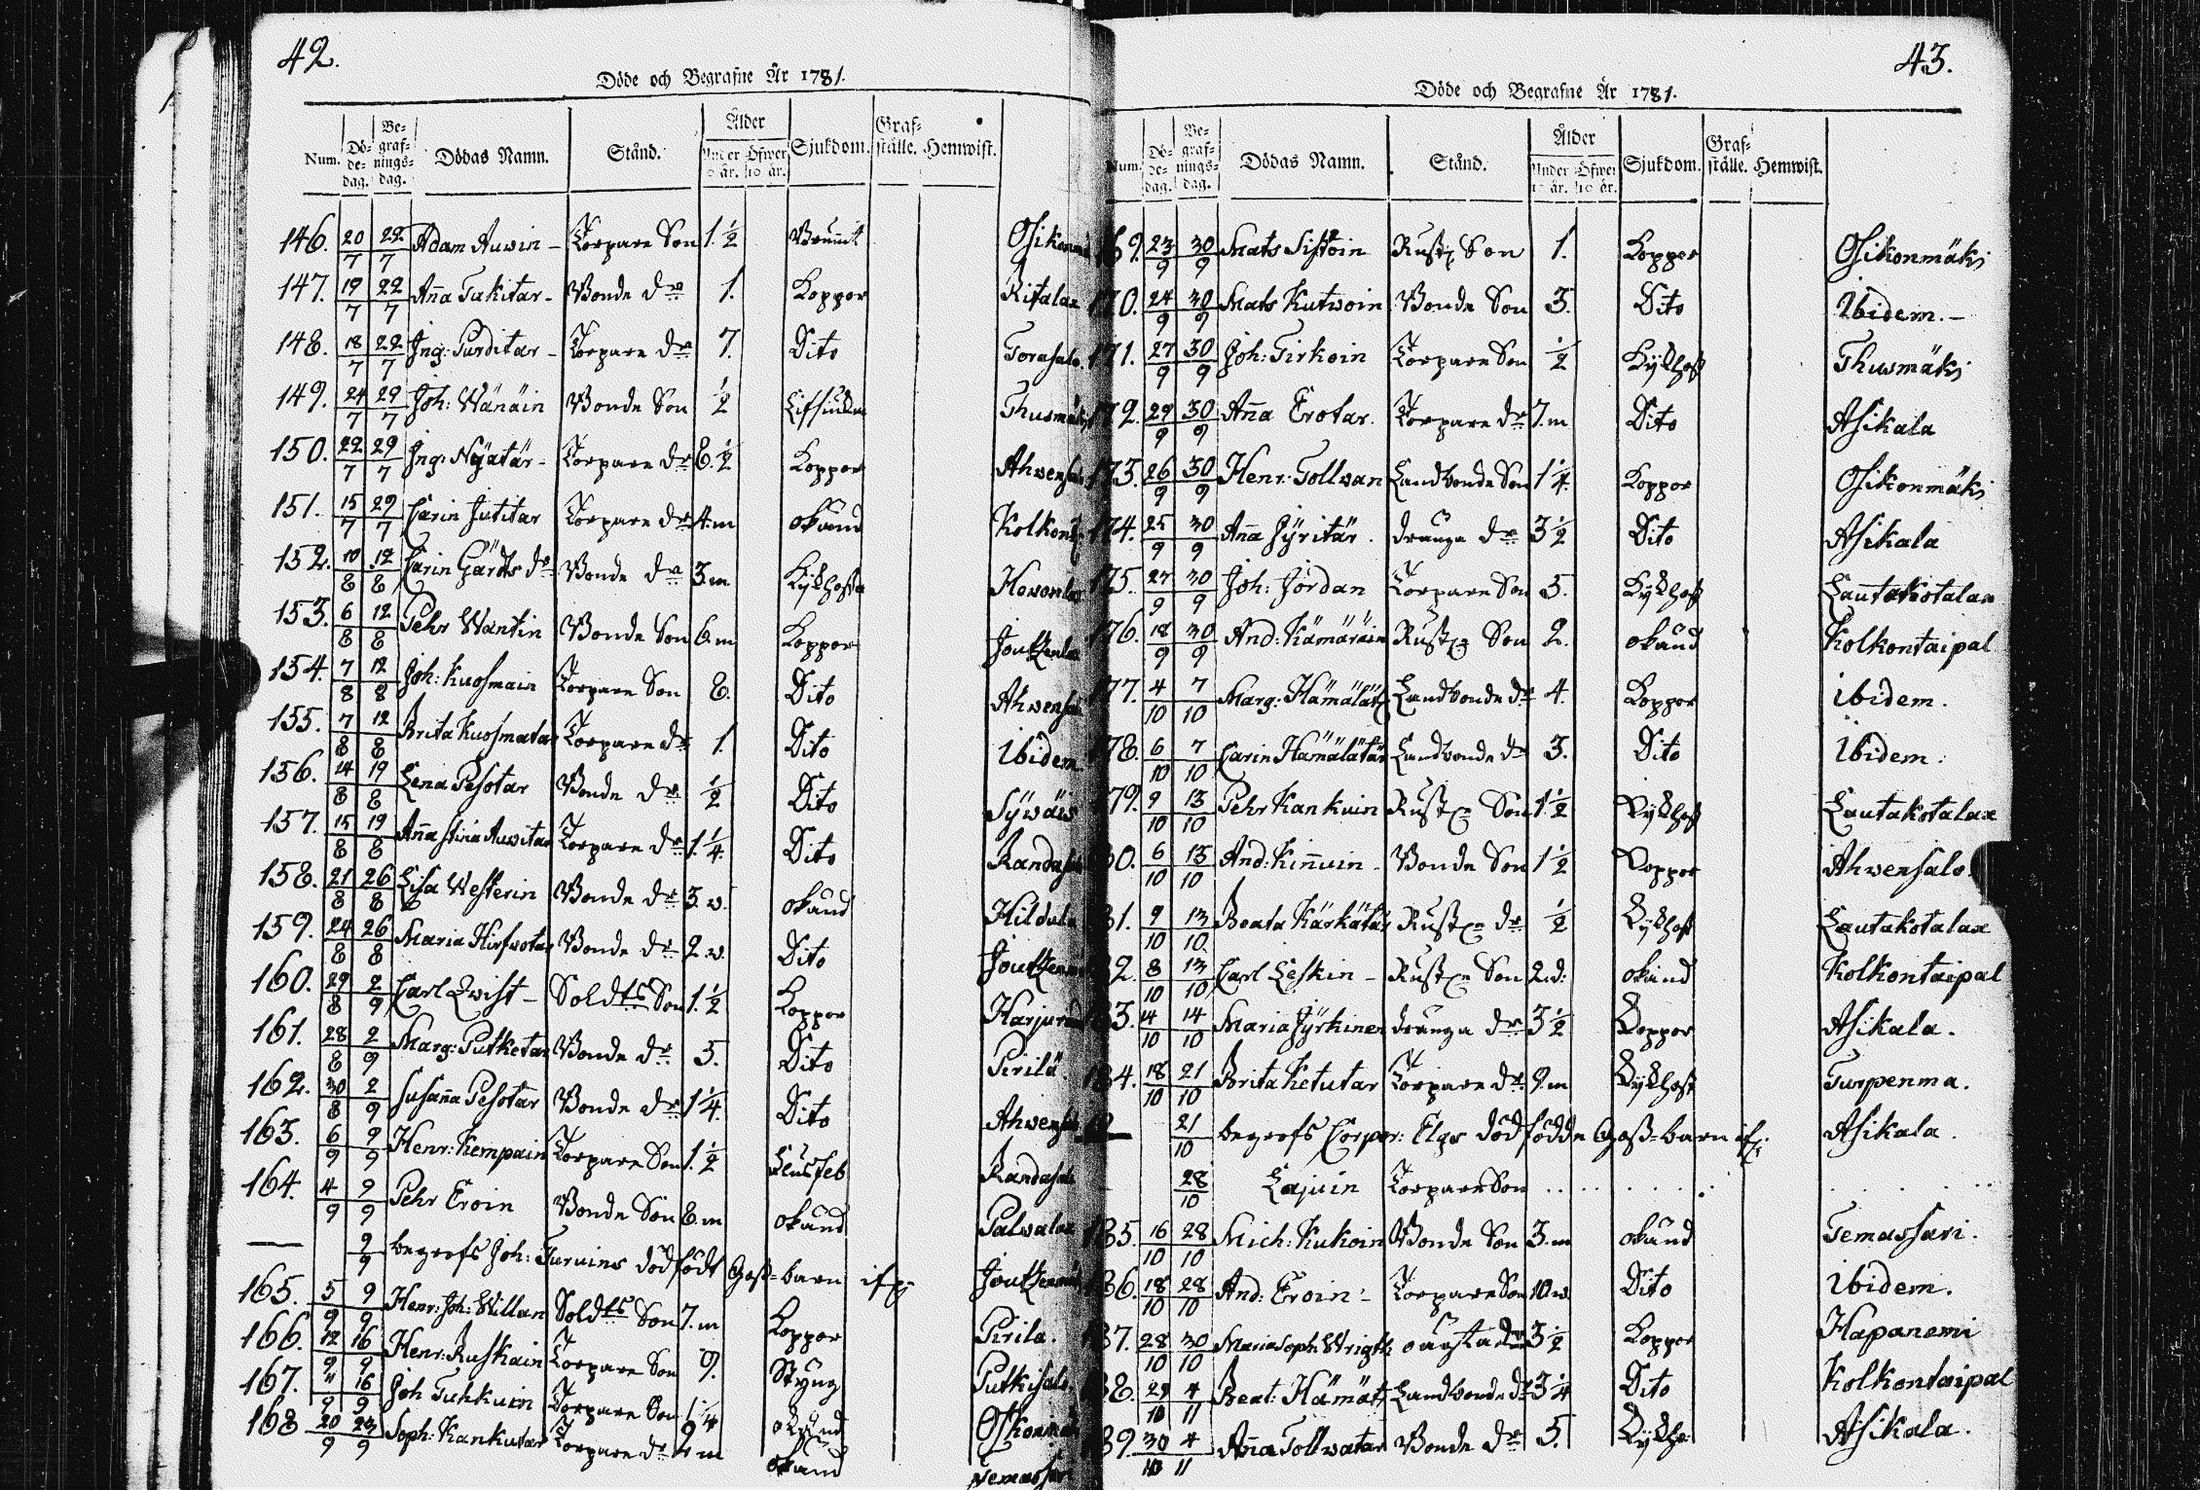 42.
Döde och Begrafne År 1781.
Num. Dö-de-dag. Be-graf-nings-dag. Dödas Namn. Stånd. Ålder Under 10 år. Öfwer 10 år. Sjukdom. Graf-ställe. Hemwist.
146. 20/7 22/7 Adam Auwin - Torpare Son 1. ½ Osikonmä
147. 19/7 22/7 Aña Takitar - Bonde dr 1. Koppor Ritalax
148. 18/7 22/7 Ing: Purditar - Torpare dr 7. Dito Torasalo.
149. 24/7 29/7 Joh: Wänäin Bonde Son ½ Thusmäki
150. 22/7 29/7 Ing: Nÿätär - Torpare dr 6. ½ Koppor Ahwensalo
151. 15/7 29/7 Carin Jutitar Torpare dr 4. m okänd Kolkont
152. 10/8 12/8 Carin Gärdts dr Bonde dr 3. m Kikhosta Howonlax
153. 6/8 12/8 Pehr Wantin Bonde Son 6. m Koppor
154. 7/8 12/8 Joh: Kuosmain Torpare Son 8. Dito Ahwensalo
155. 7/8 12/8 Brita Kuosmatar Torpare dr 1. Dito Ibidem
156. 14/8 19/8 Lena Pesotar Bonde dr ½ Dito Sÿwäis
157. 15/8 19/8 Aña Stina Auwitar Torpare dr 1. ¼. Dito Randasalo
158. 21/8 26/8 Lisa Westerin Bonde dr 3. w. okänd Hildula
159. 24/8 26/8 Maria Hirfwotar Bonde dr 2 w. Dito
160. 29/8 2/9 Carl Qwist - Soldts Son 1. ½ Koppor Harjuranta
161. 28/8 2/9 Marg: Putketar Bonde dr 5. Dito Pirilä
162. 30/8 2/9 Susaña Pesotar Bonde dr 1 ¼. Dito Ahwensalo
163. 6/9 9/9 Henr: Kempain Torpare Son 1. ½ Randasalo
164. 4/9 9/9 Pehr Eroin Bonde Son 8. m okänd Palvalax
— 9/9 begrofs Joh: Turvins dödfödt Goss-barn ifr:
165. 5/9 9/9 Henr: Joh: Willan Soldts Son 7. m Koppor Pirila.
166. 12/9 16/9 Henr: Ruskain Torpare Son 9. Styng Putkisalo
167. 11/9 16/9 Joh Tuhkuin Torpare Son 1. ¼ okänd Osikonmä
168 20/9 23/9 Soph: Kankutar Torpare dr 2 m okänd Temassari
43.
Döde och Begrafne År 1781.
Num. Dö-de-dag. Be-graf-nings-dag. Dödas Namn. Stånd. Ålder Under 10 år. Öfwer 10 år. Sjukdom. Graf-ställe. Hemwist.
169. 23/9 30/9 Mats Sistoin Rustz Son 1. Koppor Osikonmäki
170. 24/9 30/9 Mats Kutwoin Bonde Son 3. Dito Ibidem. -
171. 27/9 30/9 Joh: Tirkoin Torpare Son ½ Kikhost Thusmäki
172. 29/9 30/9 Aña Erotar. Torpare dr 7. m Dito Asikala
173. 26/9 30/9 Henr: Tollwan Landbonde Son 1 ¼. Koppor Osikonmäki
174. 25/9 30/9 Aña Jÿritär. dränga dr 3 ½ Dito Asikala
175. 27/9 30/9 Joh: Jordan Torpare Son 5. Kikhost Lautakotalax
176. 18/9 30/9 And: Kämäräin Rustz Son 2. okänd Kolkontaipal
177. 4/10 7/10 Marg: Hämälät Landbonde dr 4. Koppor ibidem.
178. 6/10 7/10 Carin Hämälätär Landbonde dr 3. Dito Ibidem.
179. 9/10 13/10 Pehr Kankuin Rustz Son 1 ½ Kikhost Lautakotalax
180. 6/10 13/10 And: Kiñuin - Bonde Son 1 ½ Koppor Ahwensalo.
181. 9/10 13/10 Beata Kärkätär Rustz dr ½ Kikhost Lautakotalax
182. 8/10 13/10 Carl Leskin - Rustz Son 2. d: okänd Kolkontaipal
183. 14/10 14/10 Maria Jÿrkinen dränga dr 3 ½ Koppor Asikala.
184. 18/10 21/10 Brita Ketutar Torpare dr 9. m Kikhost Turpenma.
— 21/10 begrofs Corpor: Elgs dödfödde Goss-barn ifr: Asikala.
28/10 Lajuin Torpare Son . . . . . .
185. 16/10 28/10 Mich: Kukoin Bonde Son 3. m okänd Temassari.
186. 18/10 28/10 And: Eroin - Torpare Son 10. w. Dito ibidem.
187. 28/10 30/10 Maria Soph: Wrigth 3 ½ Koppor Hapanemi
188. 29/10 4/11 Beat: Hämät: Landbonde dr 3 ¼ Dito Kolkontaipal
189. 30/10 4/11 Aña Tollwatar Bonde dr 5. Kikho: Asikala.